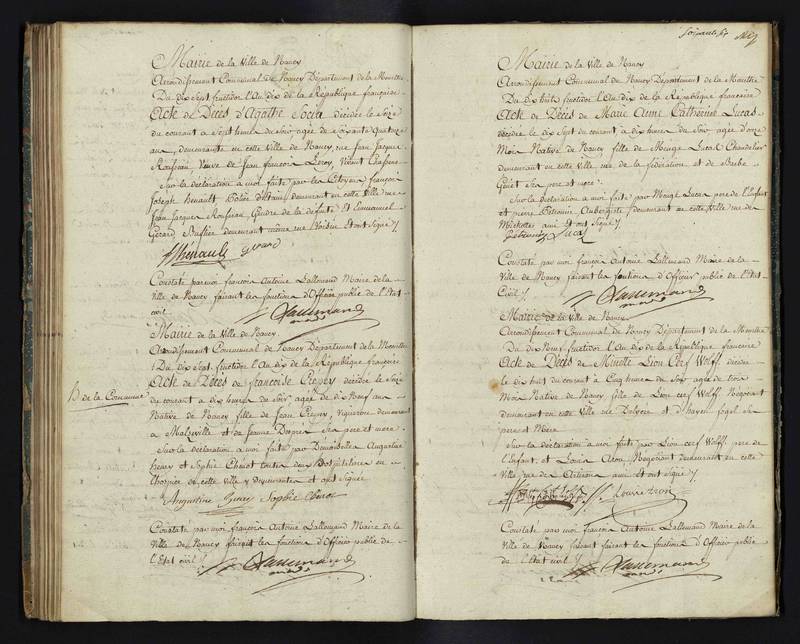 Mairie de la Ville de Nancy
Arrondissement Communal de Nancy Département de la Meurthe
Du dix Sept fructidor l'An dix de la République françoise
Acte de Décès d'Agathe décédée le Seize
du courant à Sept heures de Soir agée de Soixante Quatorze
ans, demeurante en cette Ville de Nancy rue Jean Jacques
Rousseau Veuve de Jean françois Leroy, Vivant
Sur la déclaration à moi faite par les Citoyens françois
Joseph henault demeurant en cette Ville rue
Jean Jacques Rousseau Gendre de la défunte Et Emmanuel
Gerard demeurant même rue Voisin Et ont Signé
fhénault gerard
Constaté par moi françois Antoine Lallemand Maire de la
Ville de Nancy faisant les fonctions d'Officier public de l'Etat
civil
Lallemand
Mairie de la Ville de Nancy
Arrondissement Communal de Nancy Département de la Meurthe
Du dix Sept fructidor l'An dix de la République françoise
Acte de Décès de françoise décédée le Seize
h. de la Commune
du courant à dix heures de Soir agée de dix Neuf ans
Native de Nancy fille de Jean Vigneron demeurant
à Malzéville et de Jeanne Després Ses pere et mere
Sur la déclaration à moi faite par Demoiselles Augustine
henry et Sophie toutes deux hospitalières en
l'hospice de cette Ville y demeurantes et ont Signées
Augustine henry Sophie
Constaté par moi françois Antoine Lallemand Maire de la
Ville de Nancy faisant les fonctions d'Officier public de
l'Etat civil
Lallemand
Mairie de la Ville de Nancy
Arrondissement Communal de Nancy Département de la Meurthe
Du dix huit fructidor l'An dix de la République françoise
Acte de Décès de Marie Anne Catherine Lucas
décédée le dix Sept du courant à dix heures du Soir agée d'onze
Mois Native de Nancy fille de Lucas Chandelier
demeurant en cette Ville rue de la fédération et de Barbe
Ses pere et mere
Sur la déclaration à moi faite par Lucas pere de l'Enfant
et pierre Aubergiste, demeurant en cette Ville rue de
ami Et ont Signé
Lucas
Constaté par moi françois Antoine Lallemand Maire de la
Ville de Nancy faisant les fonctions d'Officier public de l'Etat
Civil
Lallemand
Mairie de la Ville de Nancy
Arrondissement Communal de Nancy Département de la Meurthe
Du dix Neuf fructidor l'An dix de la République françoise
Acte de Décès de Minette Lion Cerf Wolff décédée
le dix huit du courant à Cinq heures du Soir agée de trois
Mois Native de Nancy fille de Lion Cerf Wolff Négociant
demeurant en cette Ville rue et d'hayem Ses
pere et Mere
Sur la déclaration à moi faite par Lion cerf Wolff pere de
l'Enfant et Louis Aron Négociant demeurant en cette
Ville rue de ami Et ont Signé
Aron
Constaté par moi françois Antoine Lallemand Maire de la
Ville de Nancy faisant les fonctions d'Officier public
de l'Etat civil
Lallemand